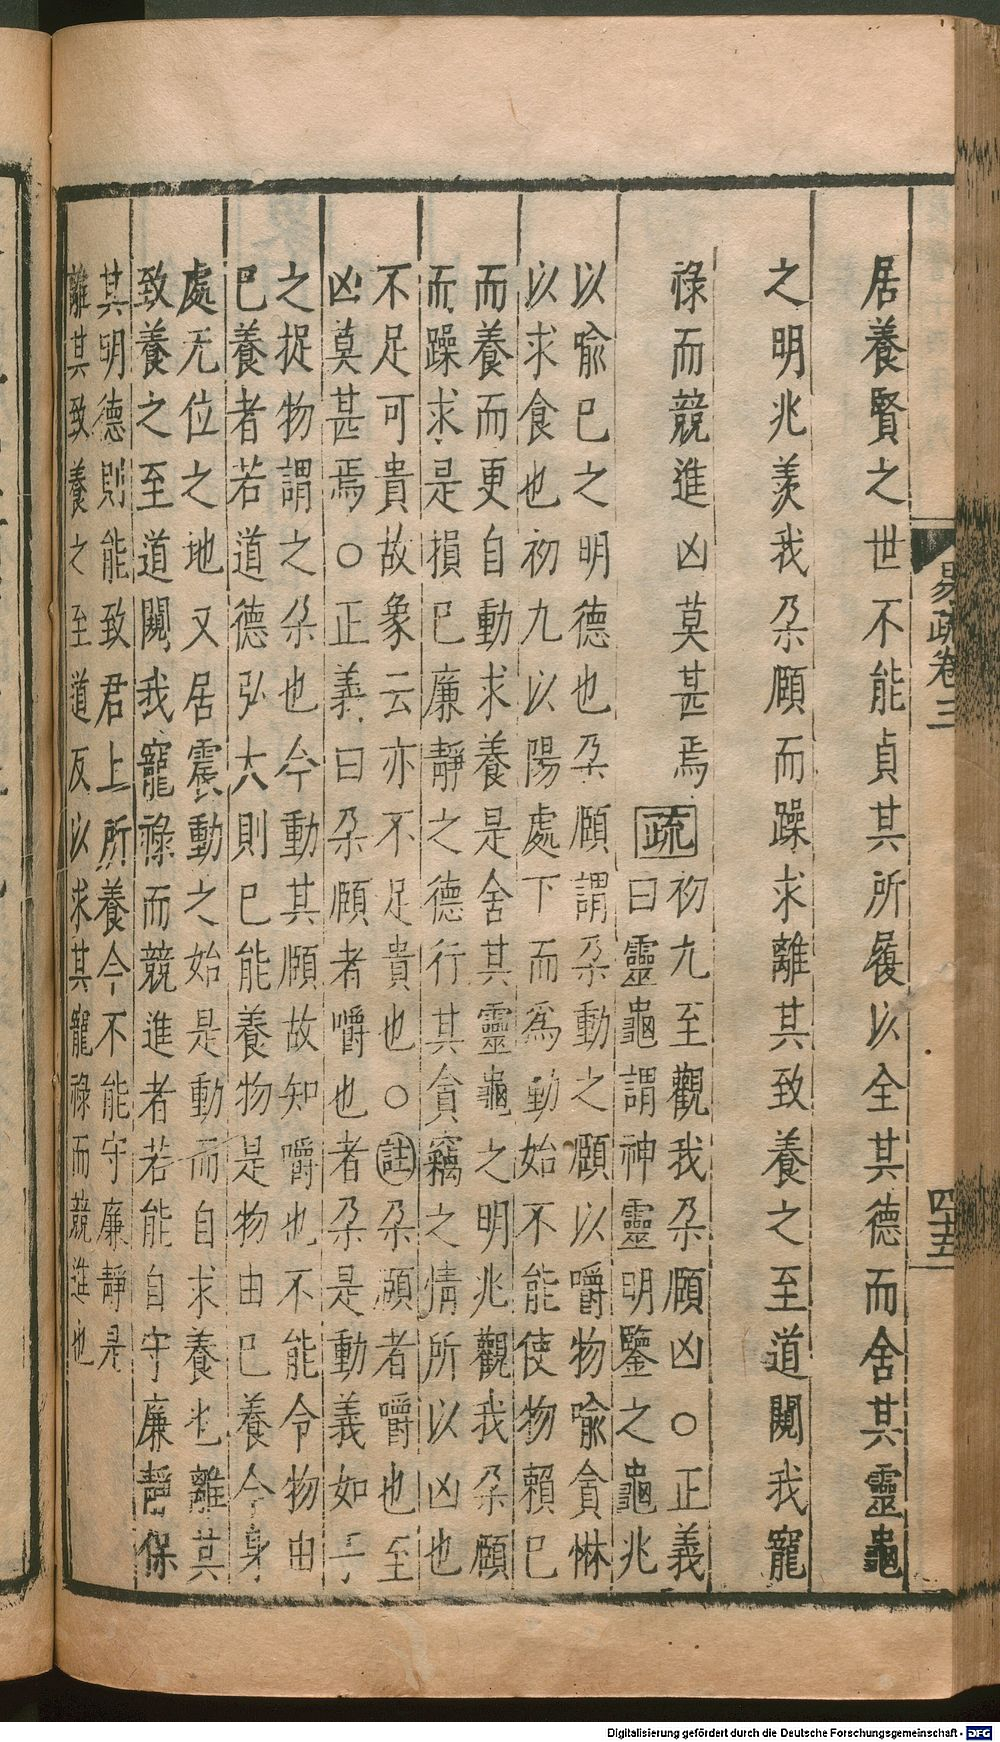 居養賢之世不能貞其所履以全其德而舍其靈龜
之明兆羨我朶頤而躁求離其致養之至道闚我寵
祿而競進凶莫甚焉疏初九至觀我朶頤凶○正義
曰靈龜謂神靈明鑒之龜兆
以喩已之明德也朶頤謂朶動之頤以嚼物喩貪惏
以求食也初九以陽處下而爲動始不能使物賴已
而養而更自動求養是舍其靈龜之明兆觀我朶頤
而躁求是損已廉靜之德行其貪竊之情所以凶也
不足可貴故象云亦不足貴也○註朶頤者嚼也至
凶莫甚焉○正義曰朶頤者嚼也者朶是動義如手
之捉物謂之朶也今動其頤故知嚼也不能令物由
已養者若道德弘大則已能養物是物由已養今身
處无位之地又居震動之始是動而自求養也離其
致養之至道闚我寵祿而競進者若能自守廉靜保
其明德則能致君上所養今不能守廉靜是
離其致養之至道反以求其寵祿而競進也
易疏卷三
四十五
Digitalisierung gefördert durch die Deutsche Forschungsgemeinschaft - DFG